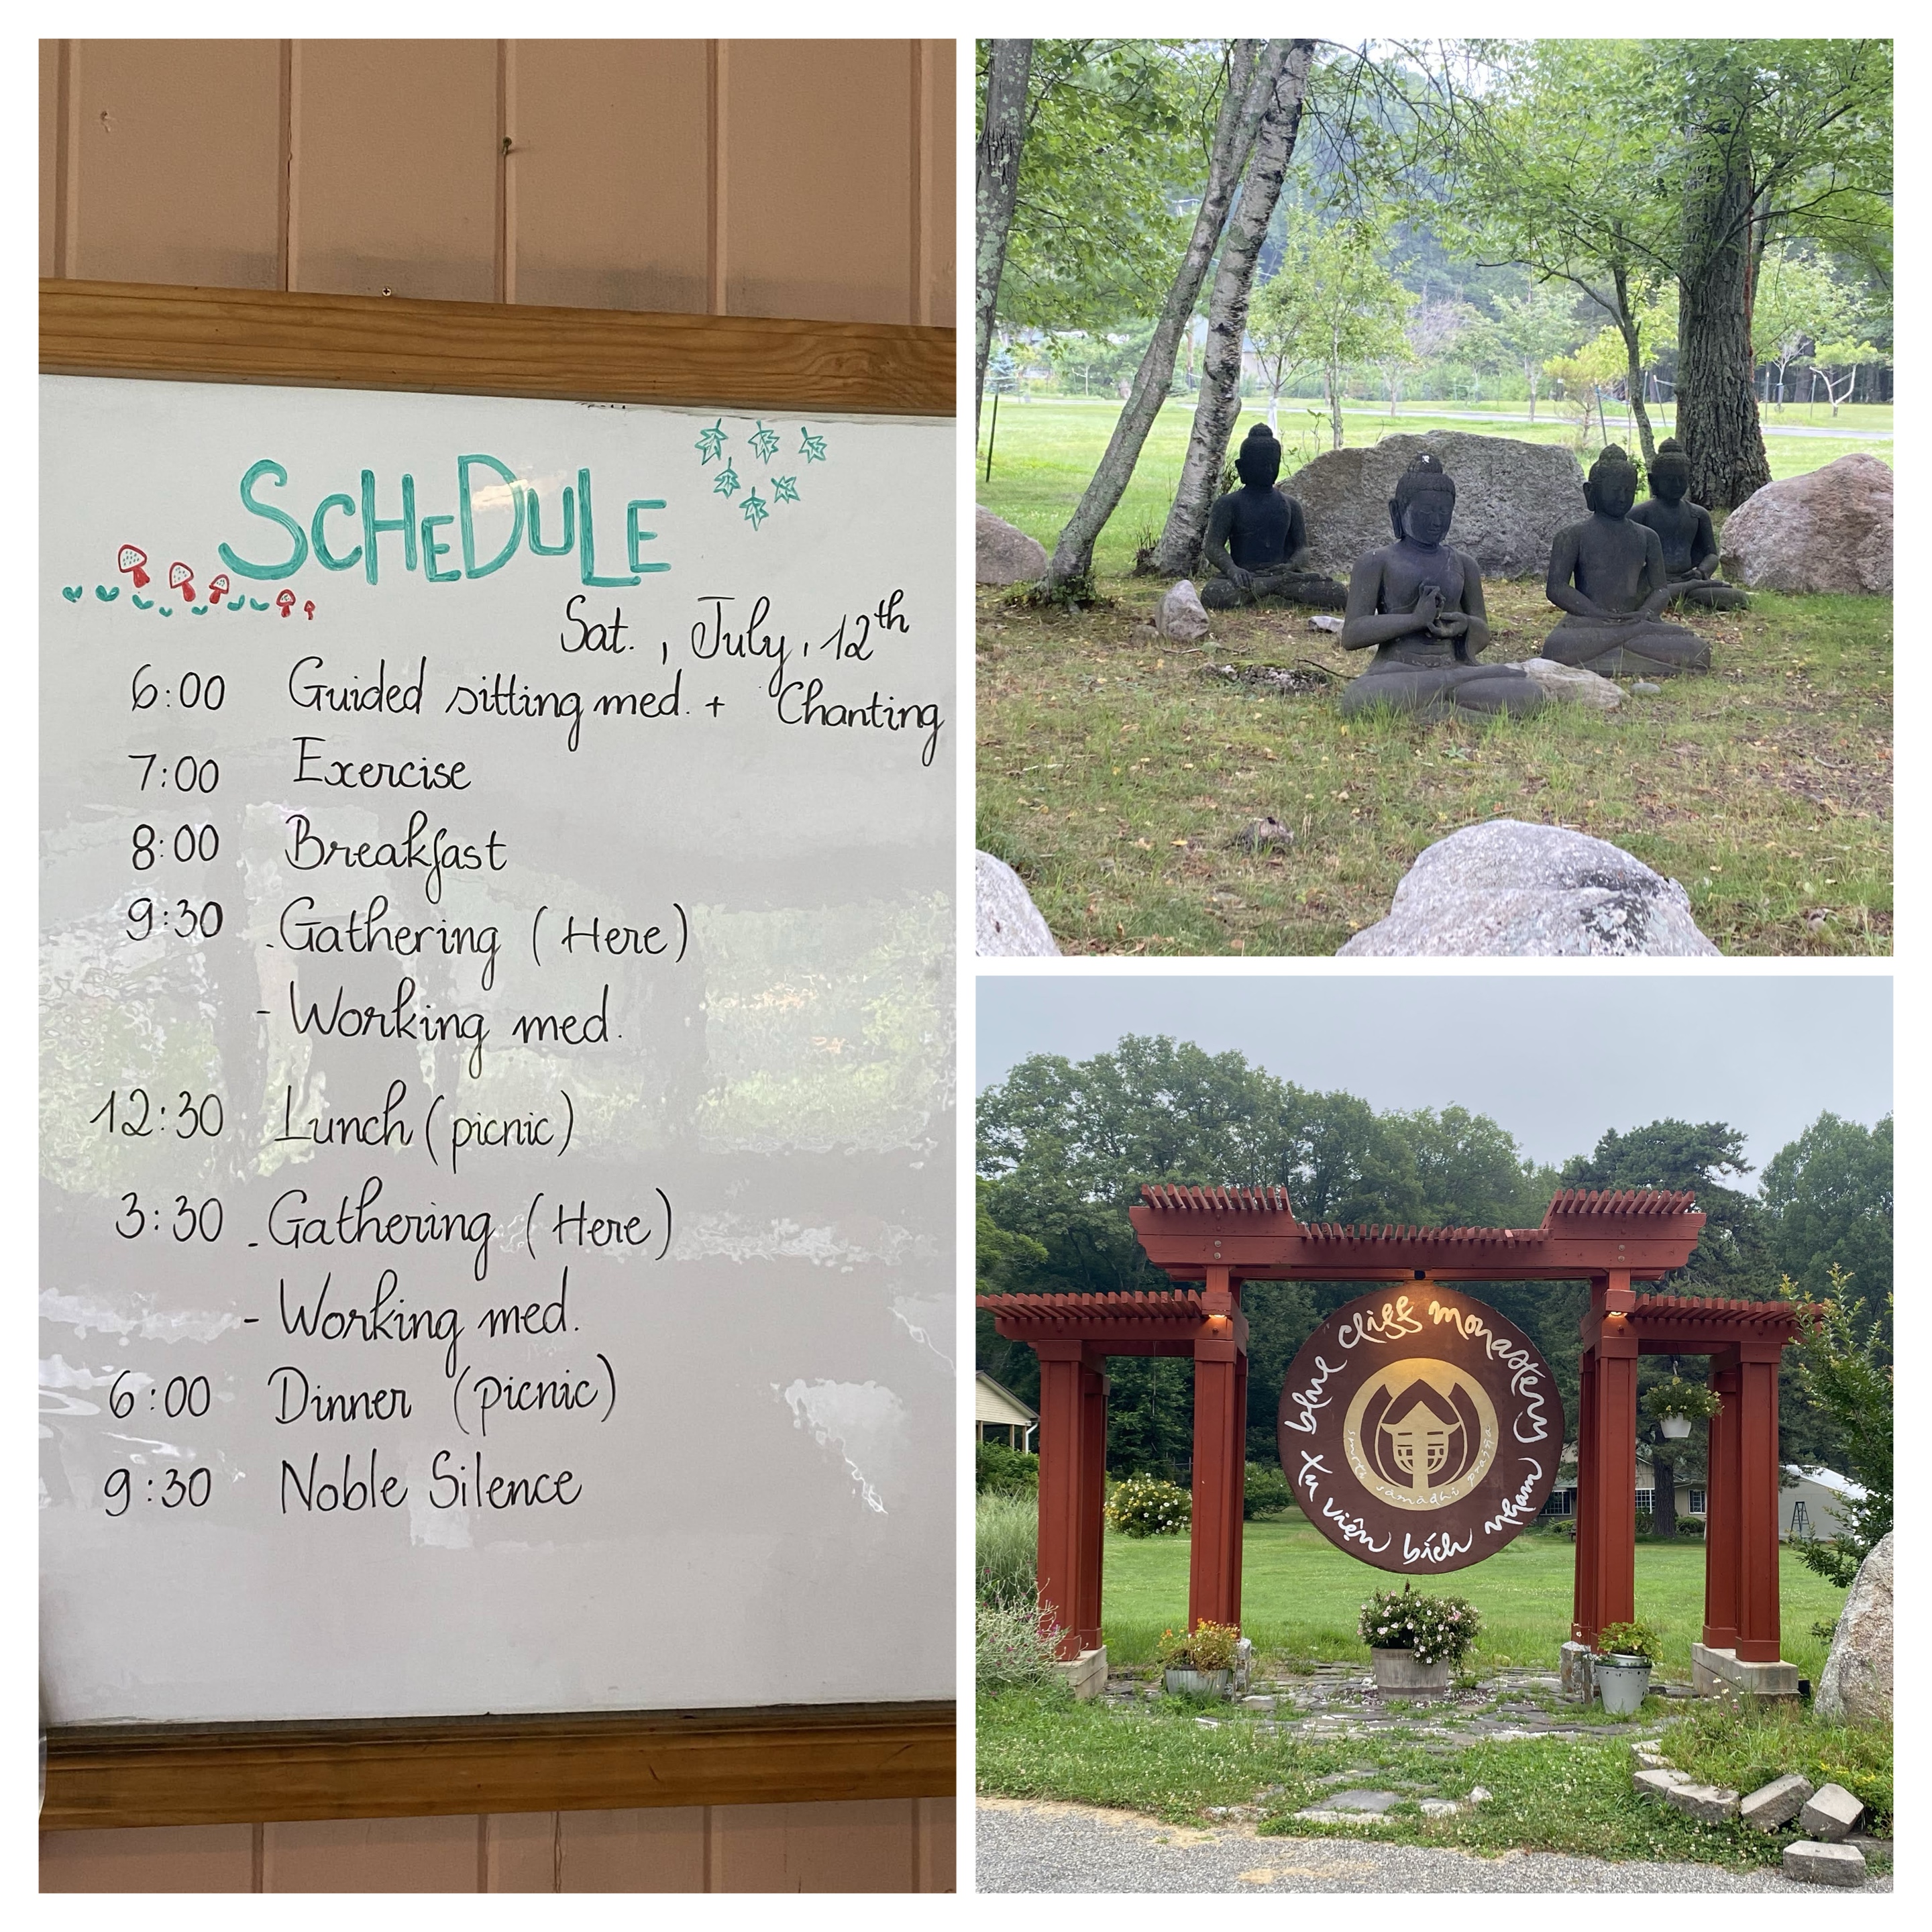 SCHEDULE
Sat., July, 12th
6:00 Guided sitting med. + Chanting
7:00 Exercise
8:00 Breakfast
9:30 - Gathering (Here)
- Working med.
12:30 Lunch (picnic)
3:30 - Gathering (Here)
- Working med.
6:00 Dinner (picnic)
9:30 Noble Silence
blue cliff monastery
smrti samādhi prajña
tu viện bích nham